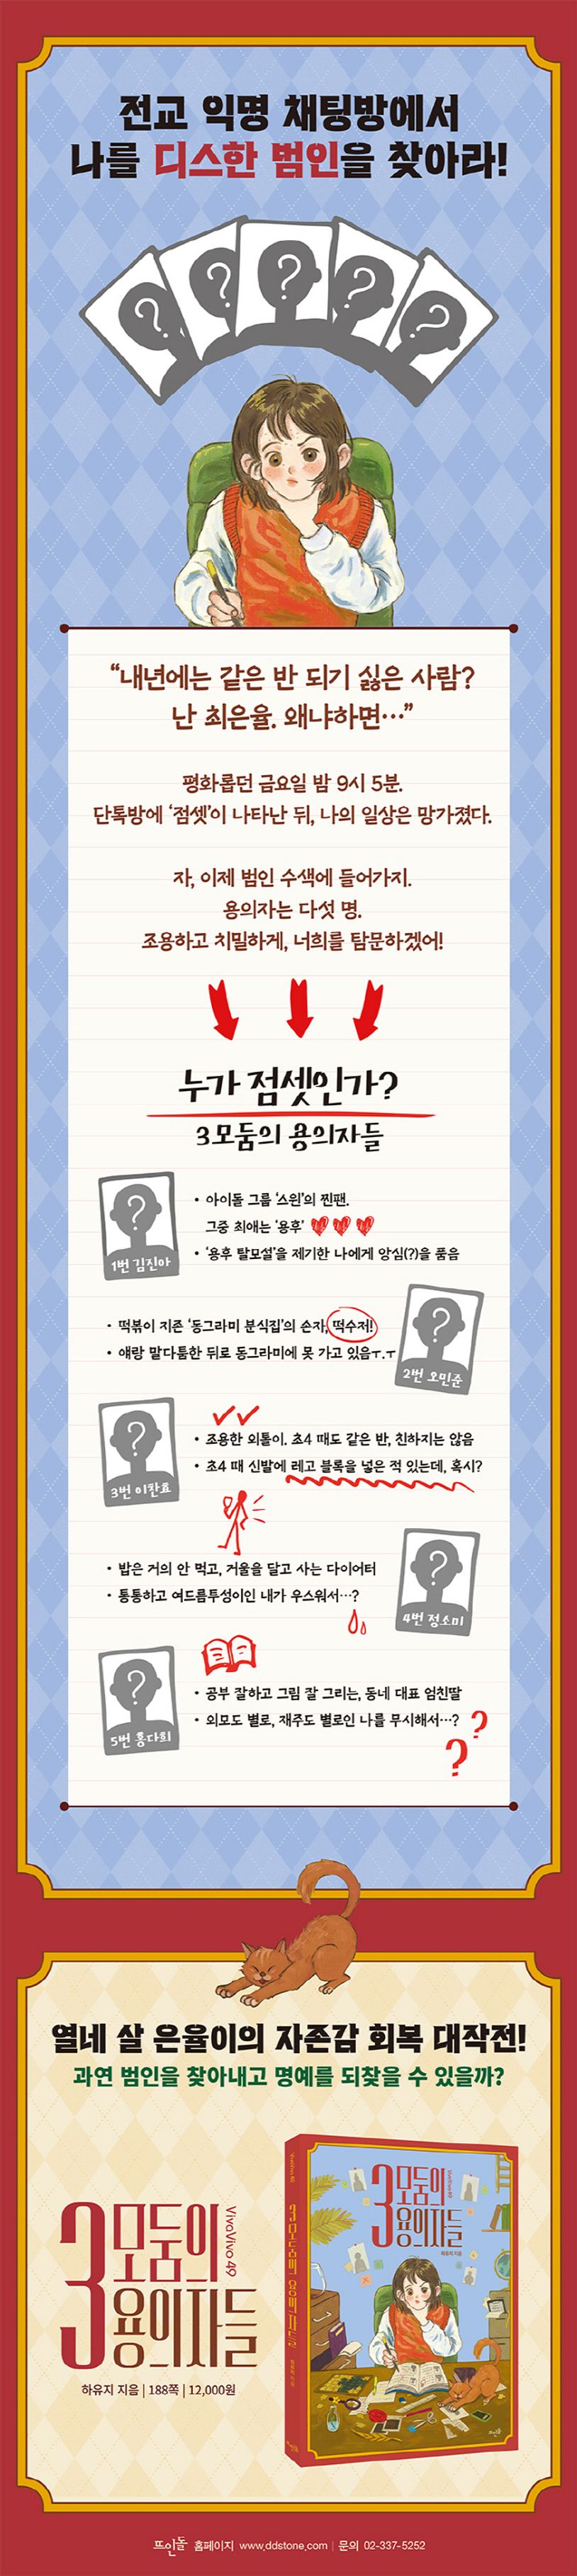 전교 익명 채팅방에서
나를 디스한 범인을 찾아라!
“내년에는 같은 반 되기 싫은 사람?
난 최은율. 왜냐하면…”
평화롭던 금요일 밤 9시 5분.
단톡방에 ‘점셋’이 나타난 뒤, 나의 일상은 망가졌다.
자, 이제 범인 수색에 들어가지.
용의자는 다섯 명.
조용하고 치밀하게, 너희를 탐문하겠어!
누가 점셋인가?
3모둠의 용의자들
1번 김진아
• 아이돌 그룹 ‘스윈’의 찐팬.
그중 최애는 ‘용후’
• ‘용후 탈모설’을 제기한 나에게 앙심(?)을 품음
• 떡볶이 지존 ‘동그라미 분식집’의 손자, 떡수저!
• 얘랑 말다툼한 뒤로 동그라미에 못 가고 있음ㅜ.ㅜ
2번 오민준
3번 이찬효
• 조용한 외톨이. 초4 때도 같은 반, 친하지는 않음
• 초4 때 신발에 레고 블록을 넣은 적 있는데, 혹시?
• 밥은 거의 안 먹고, 거울을 달고 사는 다이어터
• 통통하고 여드름투성이인 내가 우스워서…?
4번 정소미
5번 홍다희
• 공부 잘하고 그림 잘 그리는, 동네 대표 엄친딸
• 외모도 별로, 재주도 별로인 나를 무시해서…?
열네 살 은율이의 자존감 회복 대작전!
과연 범인을 찾아내고 명예를 되찾을 수 있을까?
3모둠의 용의자들
VivaVivo 49
하유지 지음 | 188쪽 | 12,000원
3모둠의 용의자들
하유지 지음
3모둠의 용의자들
뜨인돌
뜨인돌 홈페이지 www.ddstone.com | 문의 02-337-5252